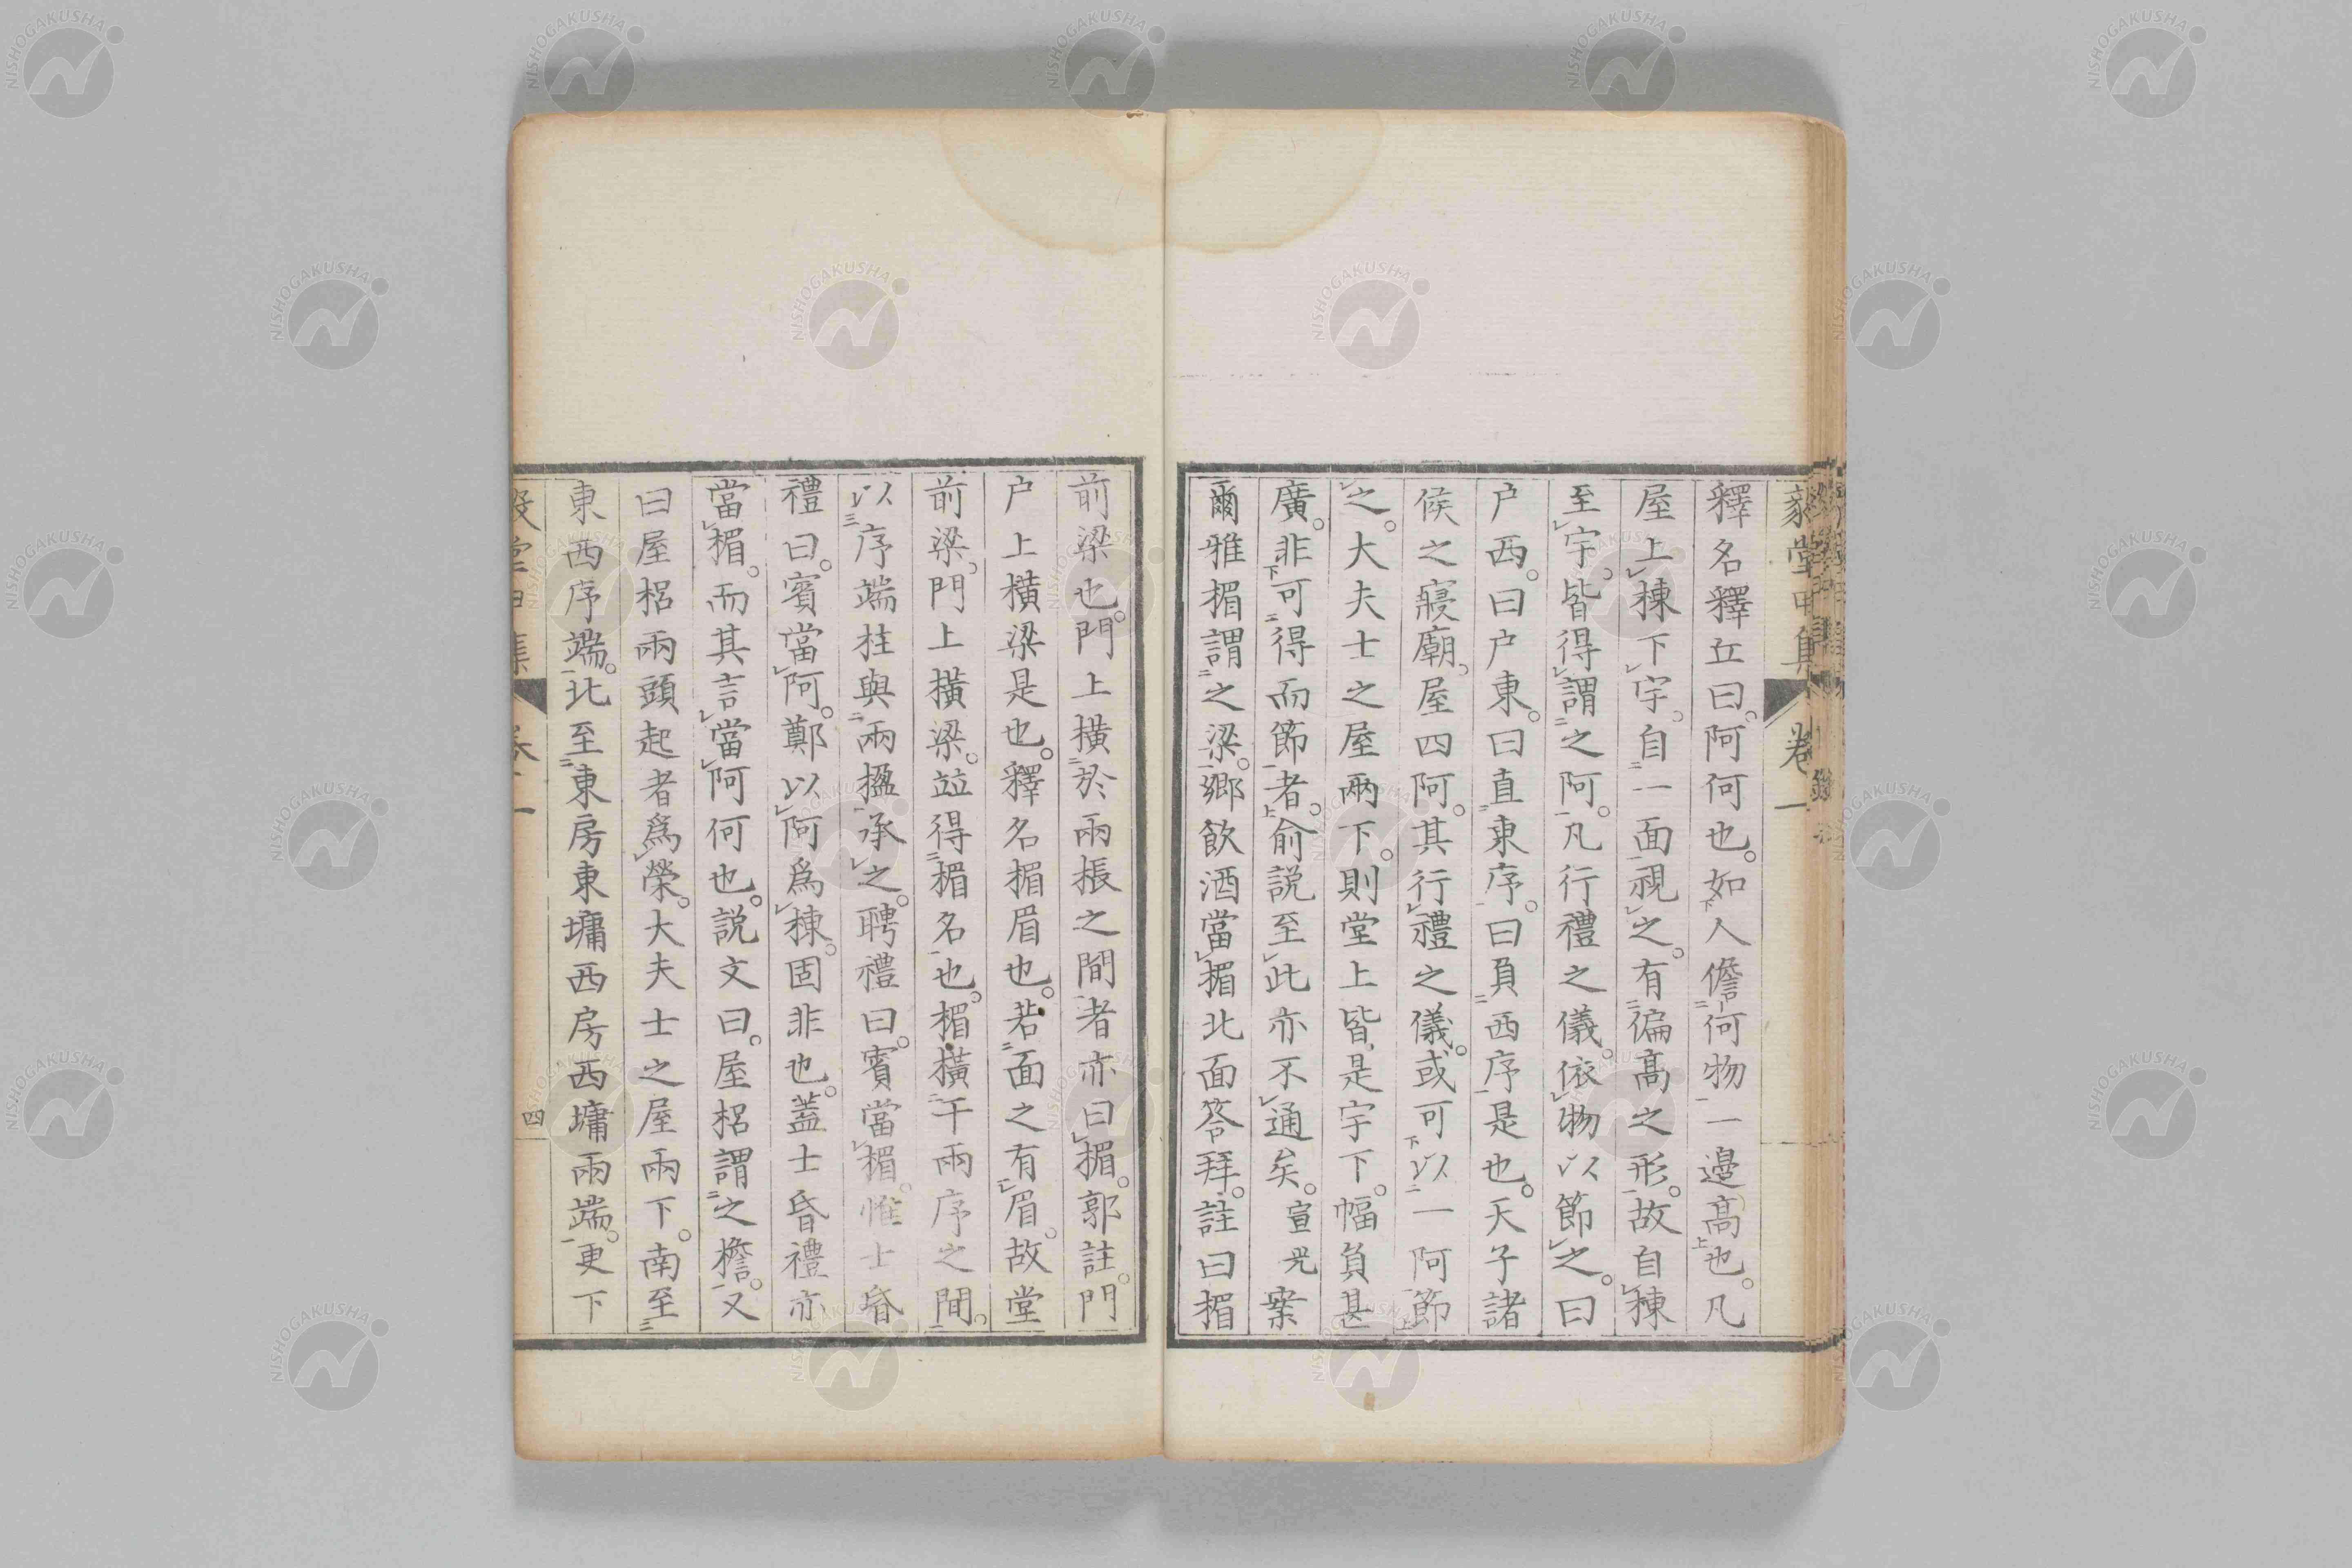 釋名釋丘曰。阿何也。如人儋何物一邉髙也。凡
屋上棟下宇。自一面視之。有徧髙之形。故自棟
至宇。皆得謂之阿。凡行禮之儀。依物以節之。曰
户西。曰户東。曰直東序。曰負西序是也。天子諸
侯之寢廟。屋四阿。其行禮之儀。或可以一阿節
之。大夫士之屋兩下。則堂上皆是宇下。幅負甚
廣。非可得而節者。俞説至此亦不通矣。宣光案
爾雅楣謂之梁。鄉飲酒當楣北面答拜。註曰楣
前梁也。門上橫於兩棖之間者亦曰楣。郭註門
户上橫梁是也。釋名楣眉也。若面之有眉。故堂
前梁。門上橫梁。竝得楣名也。楣橫于兩序之間。
以序端柱與兩楹承之。聘禮曰。賓當楣。惟士昏
禮曰。賓當阿。鄭以阿爲棟。固非也。蓋士昏禮亦
當楣。而其言當阿何也。説文曰。屋梠謂之檐。又
曰屋梠兩頭起者爲榮。大夫士之屋兩下。南至
東西序端。北至東房東墉西房西墉兩端。更下
四